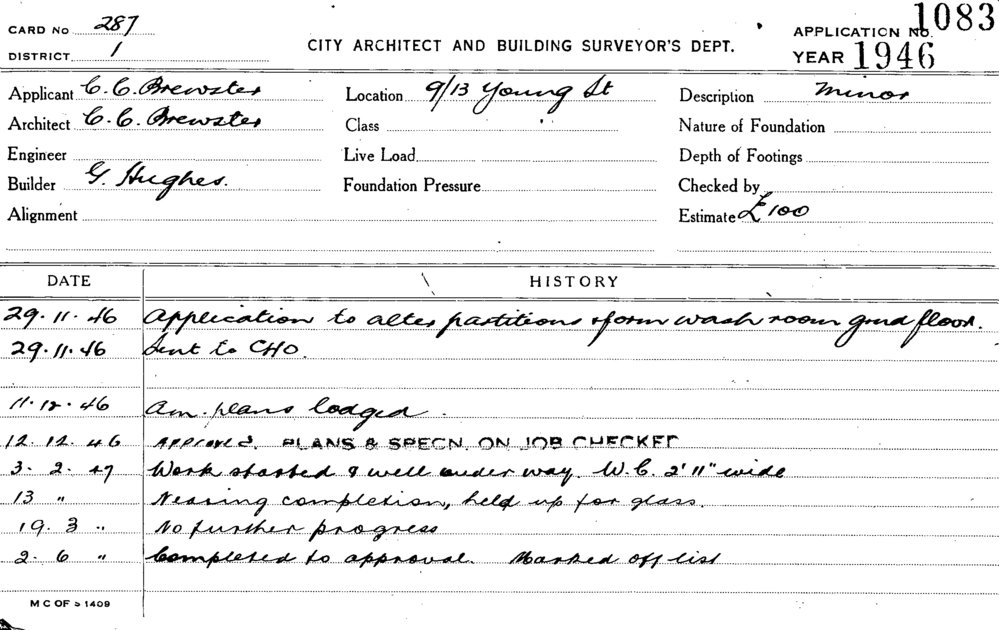 CARD No 287
DISTRICT 1
CITY ARCHITECT AND BUILDING SURVEYOR'S DEPT.
APPLICATION No. 1083
YEAR 1946
Applicant C. C. Brewster
Architect C. C. Brewster
Engineer
Builder G. Hughes.
Alignment
Location 9/13 Young St
Class
Live Load
Foundation Pressure
Description Minor
Nature of Foundation
Depth of Footings
Checked by
Estimate £100
DATE HISTORY
29.11.46 Application to alter partitions & form wash room grnd floor.
29.11.46 Sent to CHO.
11.12.46 Am. plans lodged.
12.12.46 APPROVED. PLANS & SPECN. ON JOB CHECKED
3.2.47 Work started & well under way. W.C. 2'11" wide
13 " Nearing completion, held up for glass.
19.3 " No further progress
2.6 " Completed to approval. Marked off list
M C OF S 1409